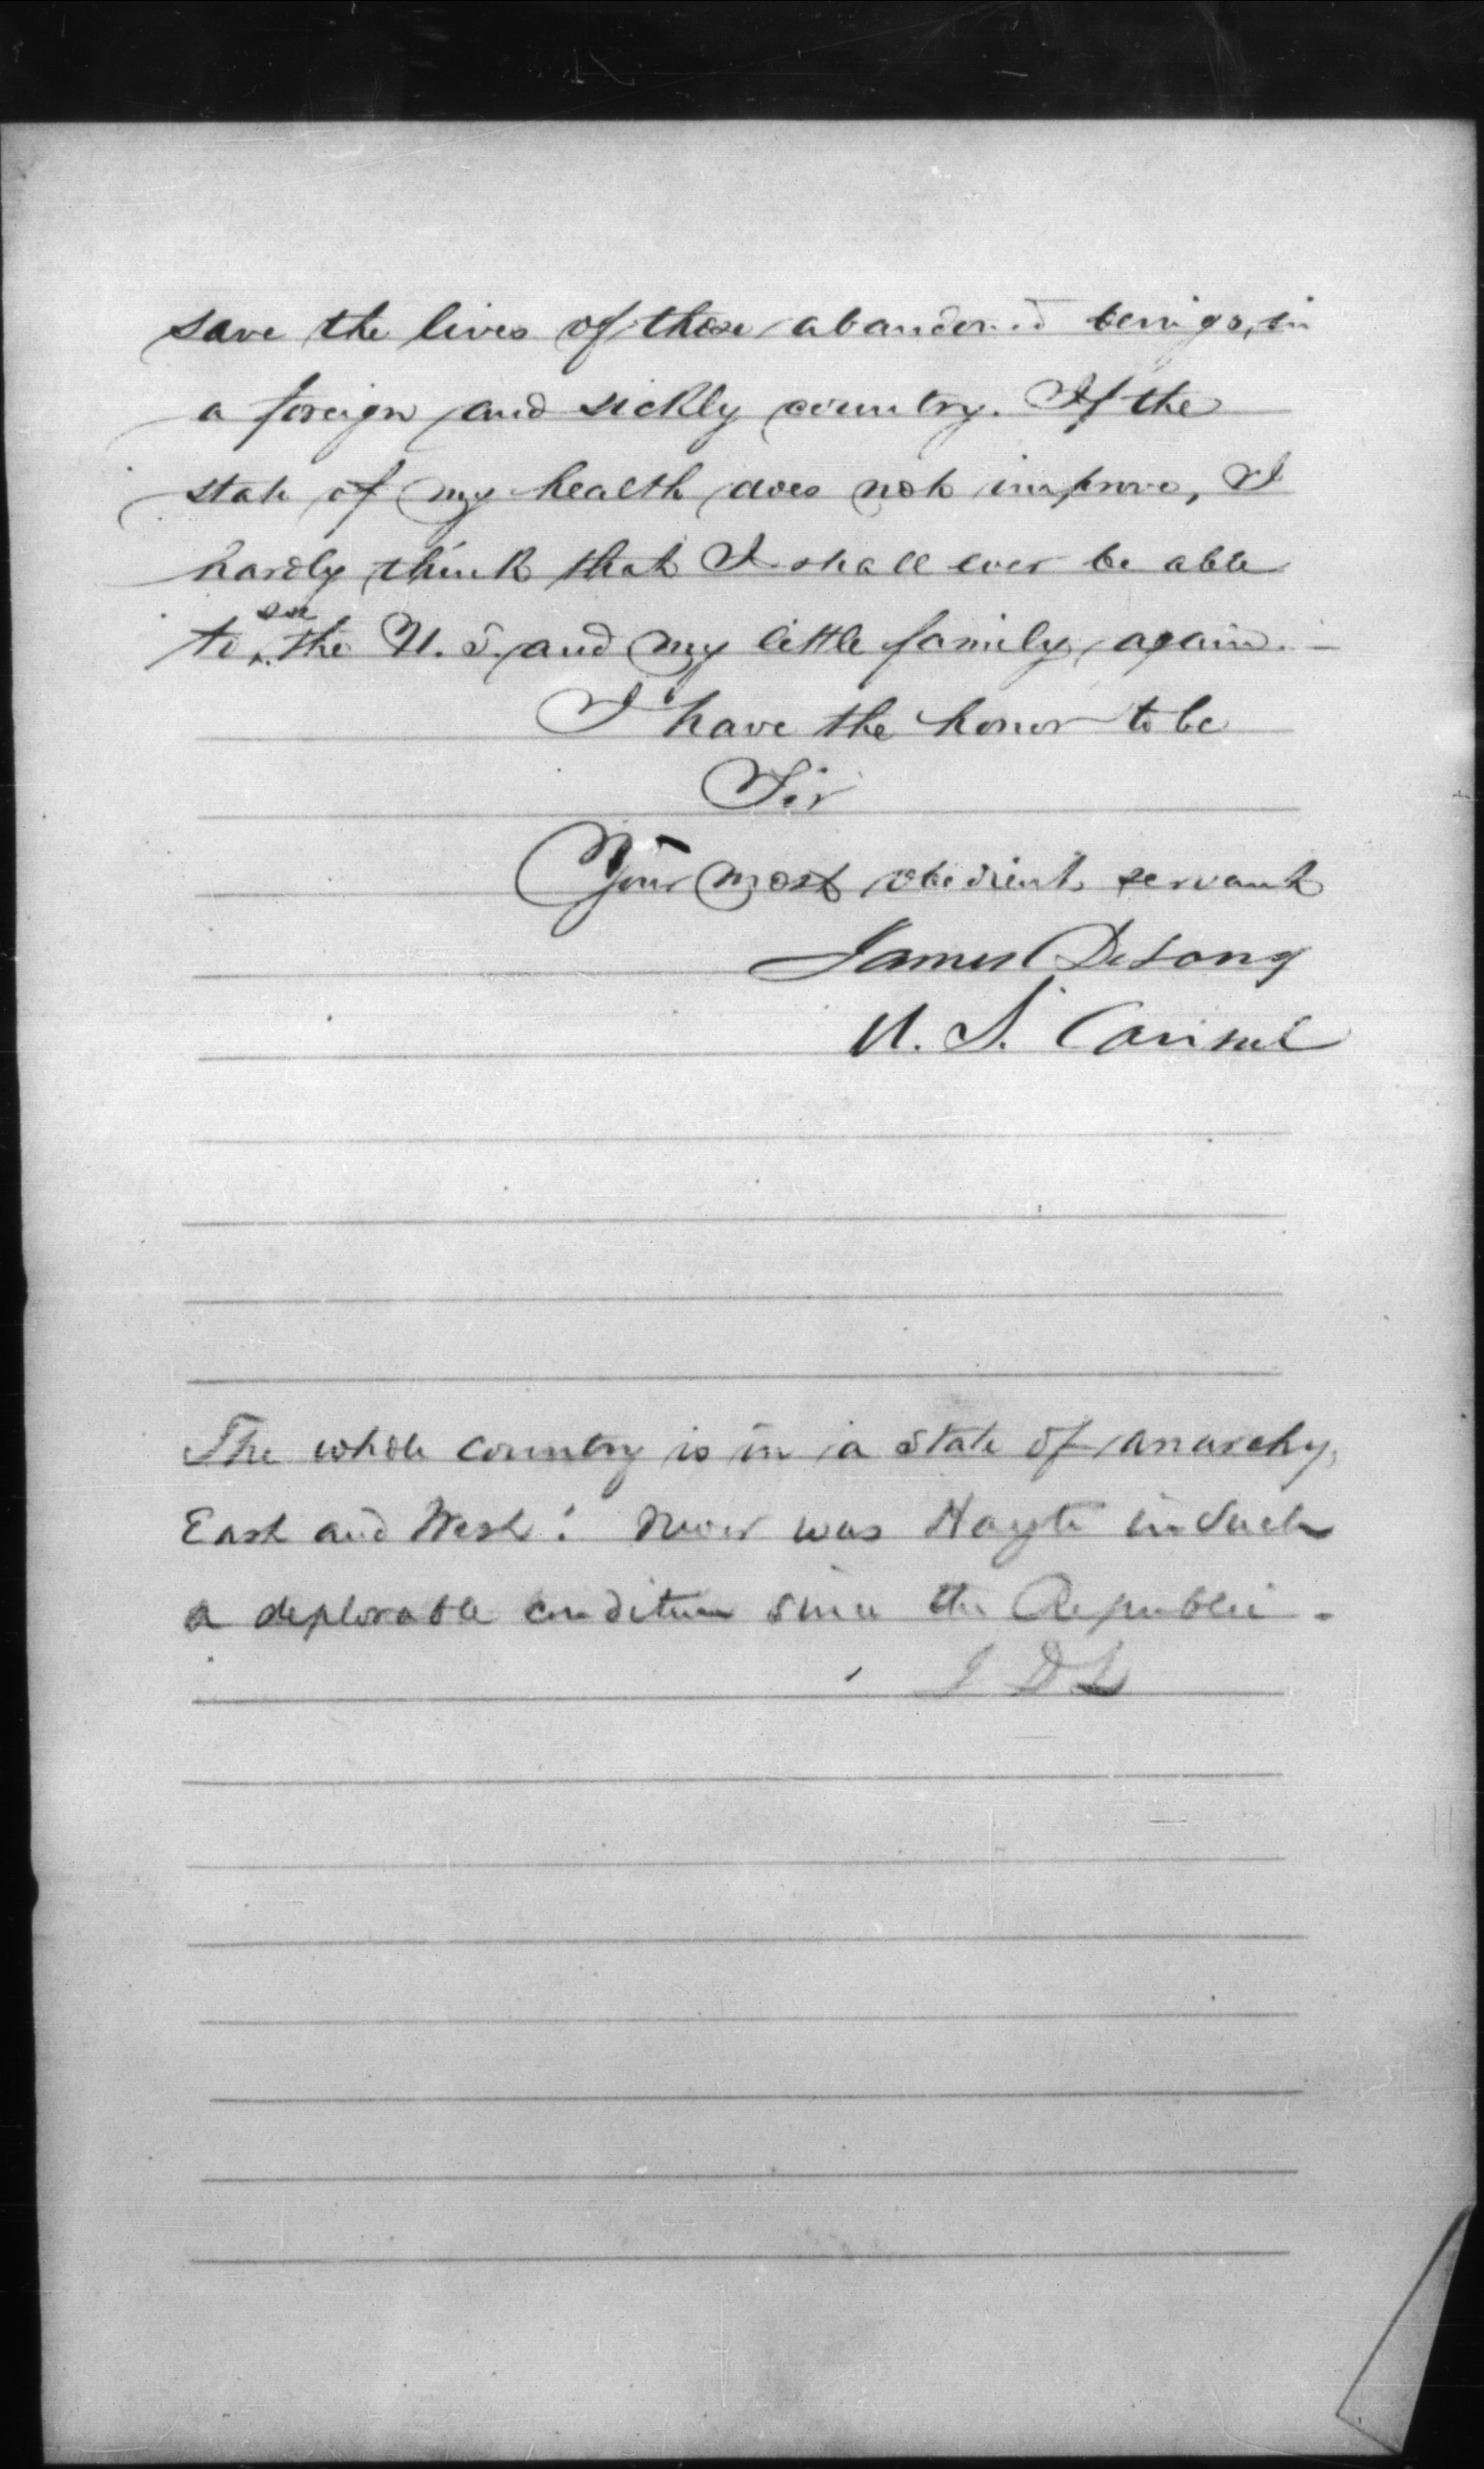 save the lives of those abandoned beings, in
a foreign and sickly country. If the
state of my health does not improve, I
hardly think that I shall ever be able
to see the U. S. and my little family again. –
I have the honor to be
Sir
Your most obedient servant
James DeLong
U. S. Consul
The whole country is in a state of anarchy,
East and West! Never was Hayti in such
a deplorable condition since the Republic.
J D L